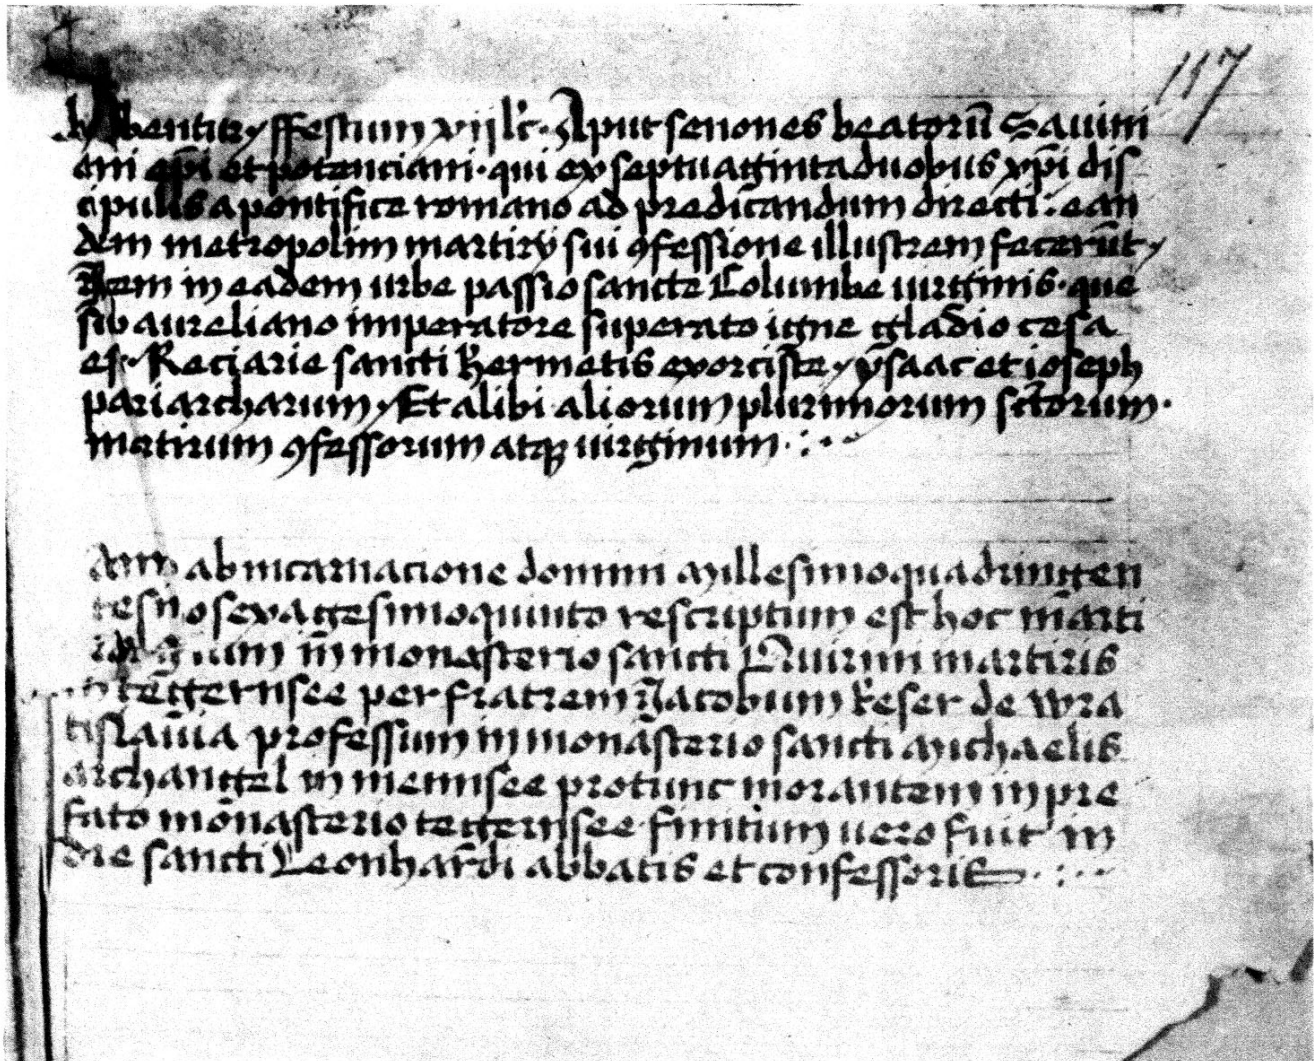 117
habentur ffestium vij kl'. Aput senones beatorū Savini
ani ep̄i et potenciani. qui ex septuaginta duobus xp̄i dis
cipulis a pontifice romano ad predicandum directi : ean
dem metropolim martirÿ sui ꝯfessione illustrem fecerūt
Item in eadem urbe passio sancte Columbe uirginis. que
sub aureliano imperatore superato igne gladio cesa
est. Reciarie sancti hermetis exorciste. ÿsaac et ioseph
pariarcharum. Et alibi aliorum plurimorum sc̄torum.
matirum ꝯfessorum atqꝫ uirginum
Anno ab incarnacione domini Millesimoquadringen
tesimosexagesimoquinto rescriptum est hoc marti
rologium in monasterio sancti Quirini martiris
in tegernsee per fratrem Jacobum keser de wra
tislauia professum in monasterio sancti Michaelis
archangel in mennsee protunc morantem in pre
fato monasterio tegernsee finitum uero fuit in
die sancti Leonhardi abbatis et confessoris